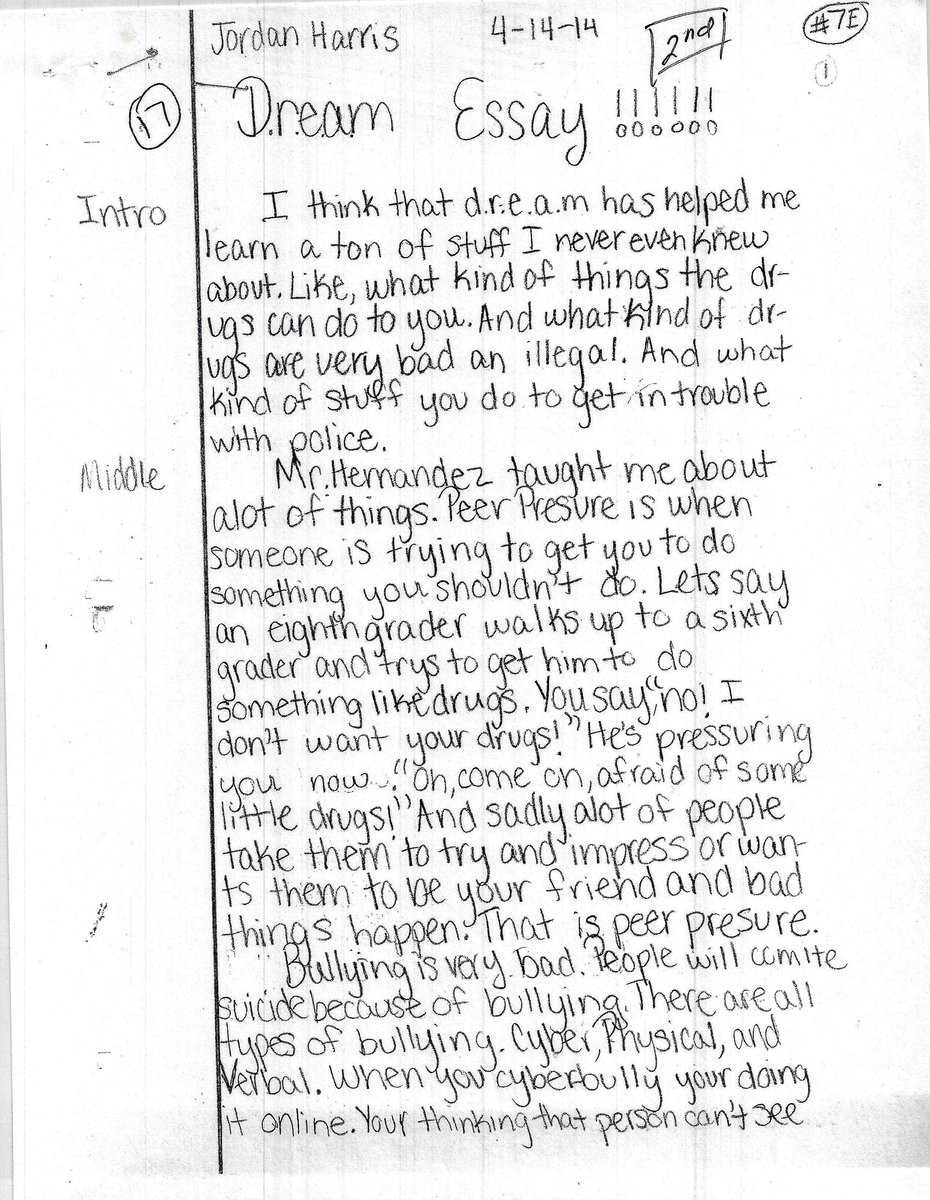 Jordan Harris 4-14-14 2nd #7E
1
17 D.r.e.a.m Essay !!!!!!
Intro I think that d.r.e.a.m has helped me
learn a ton of stuff I never even knew
about. Like, what kind of things the dr-
ugs can do to you. And what kind of dr-
ugs are very bad an illegal. And what
kind of stuff you do to get in trouble
with police.
Middle Mr. Hernandez taught me about
alot of things. Peer Presure is when
someone is trying to get you to do
something you shouldn't do. Lets say
an eighth grader walks up to a sixth
grader and trys to get him to do
something like drugs. You say, "no! I
don't want your drugs!" He's pressuring
you now. "Oh, come on, afraid of some
little drugs!" And sadly alot of people
take them to try and impress or wan-
ts them to be your friend and bad
things happen. That is peer presure.
Bullying is very bad. People will comite
suicide because of bullying. There are all
types of bullying. Cyber, Physical, and
Verbal. When you cyberbully your doing
it online. Your thinking that person can't see